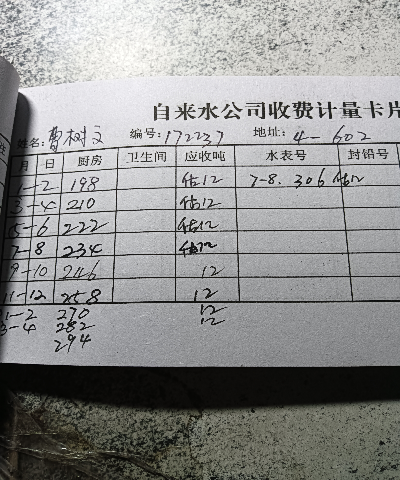 自来水公司收费计量卡片
姓名: 曹树文 编号: 172237 地址: 4-602
月 日 厨房 卫生间 应收吨 水表号 封铅号
1-2 198 估12 7-8. 306 估12
3-4 210 估12
5-6 222 估12
7-8 234 估12
9-10 246 12
11-12 258 12
1-2 270 12
3-4 282 12
294